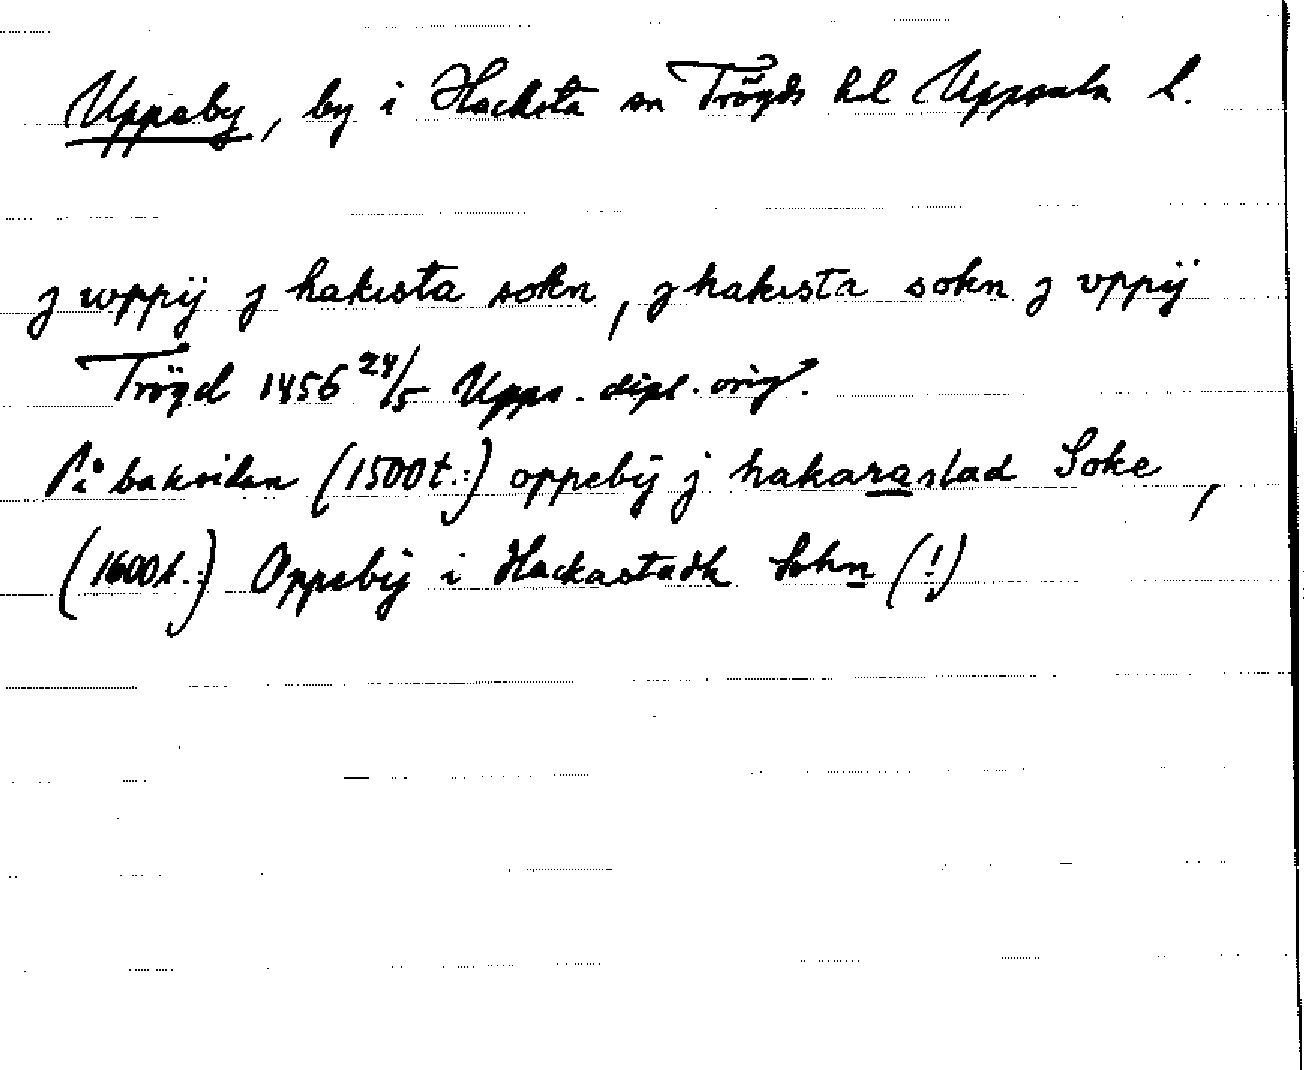 Uppeby, by i Hacksta sn Trögds hd Uppsala l.
j wppij j hakista sokn, j hakista sokn j vppij
Trögd 1456 24/5 Upps. dipl. orig.
På baksidan (1500t.:) oppebÿ j hakarastad Soke,
(1600t.:) Oppebÿ i Hackastadh Sohn (!)